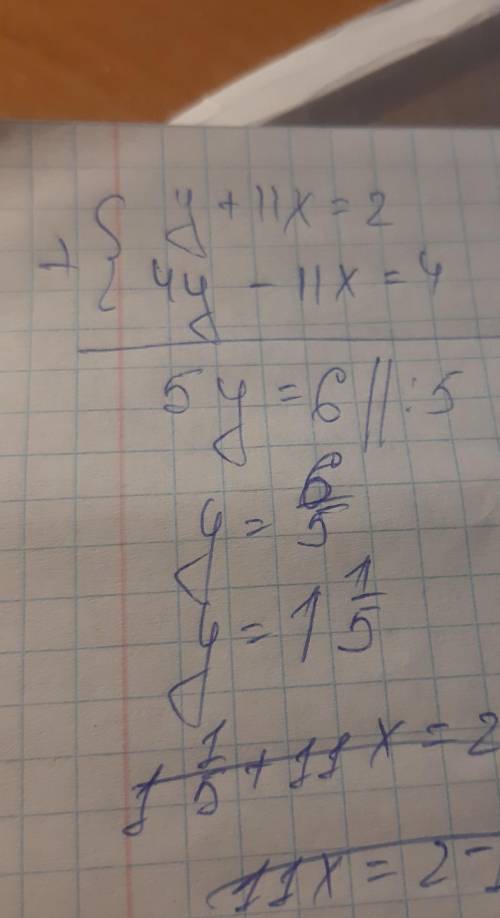 y + 11x = 2
+ { 4y - 11x = 4
5y = 6 || :5
y = 6/5
y = 1 1/5
1 1/5 + 11x = 2
11x = 2 -